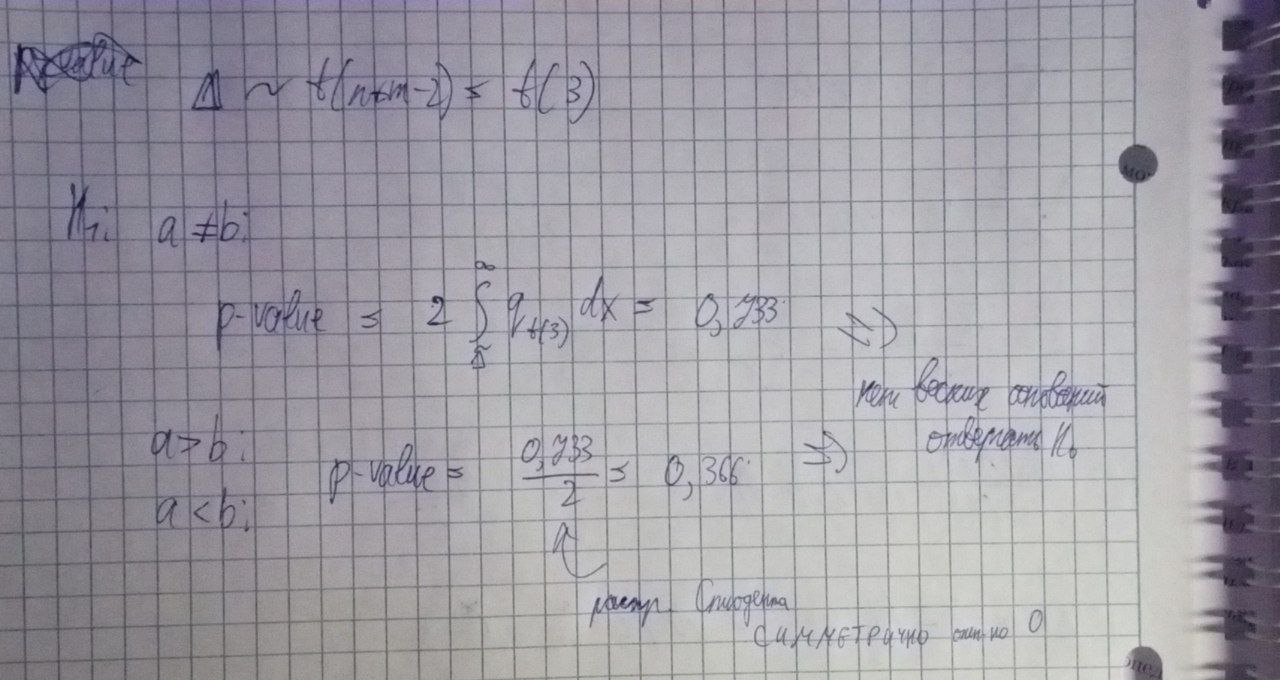 Δ ~ t(n+m-2) = t(3)
H₁: a ≠ b:
p-value = 2 ∫_Δ̃^∞ q_{t(3)} dx = 0,733 =>
нет веских оснований
отвергать H₀
a > b:
p-value = 0,733/2 = 0,366 =>
a < b:
распр. Стьюдента
симметрично отн-но 0